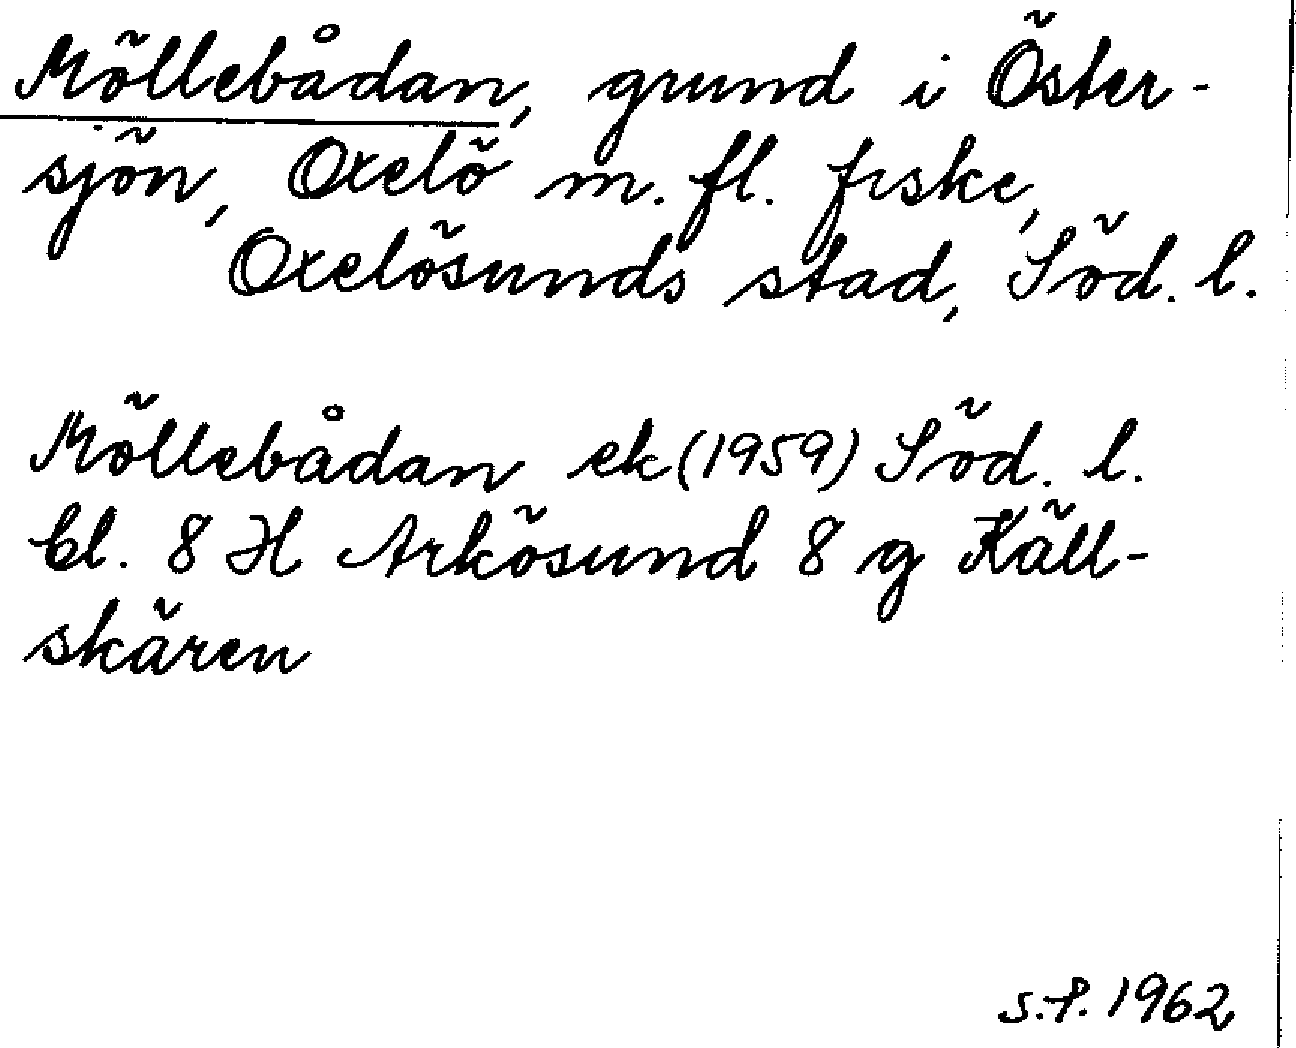 Möllebådan, grund i Öster-
sjön, Oxelö m. fl. fiske,
Oxelösunds stad, Söd. l.
Möllebådan ek (1959) Söd. l.
bl. 8 H Arkösund 8 g Käll-
skären
S.P. 1962